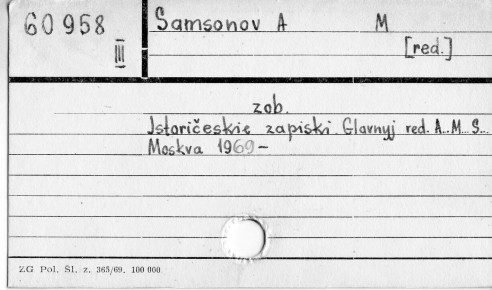 60 958
III
Samsonov A M
[red.]
zob.
Istoričeskie zapiski Glavnyj red. A. M. S.
Moskva 1969-
ZG Pol. Śl. z. 365/69. 100 000